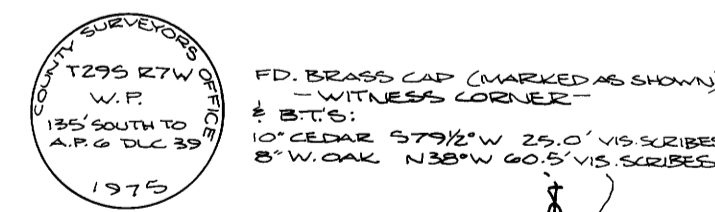 COUNTY SURVEYORS OFFICE
T29S R7W
W.P.
135' SOUTH TO
A.P. 6 DLC 39
1975
FD. BRASS CAP (MARKED AS SHOWN)
- WITNESS CORNER -
& B.T.'S:
10" CEDAR S79½°W 25.0' VIS. SCRIBES
8" W. OAK N38°W 60.5' VIS. SCRIBES